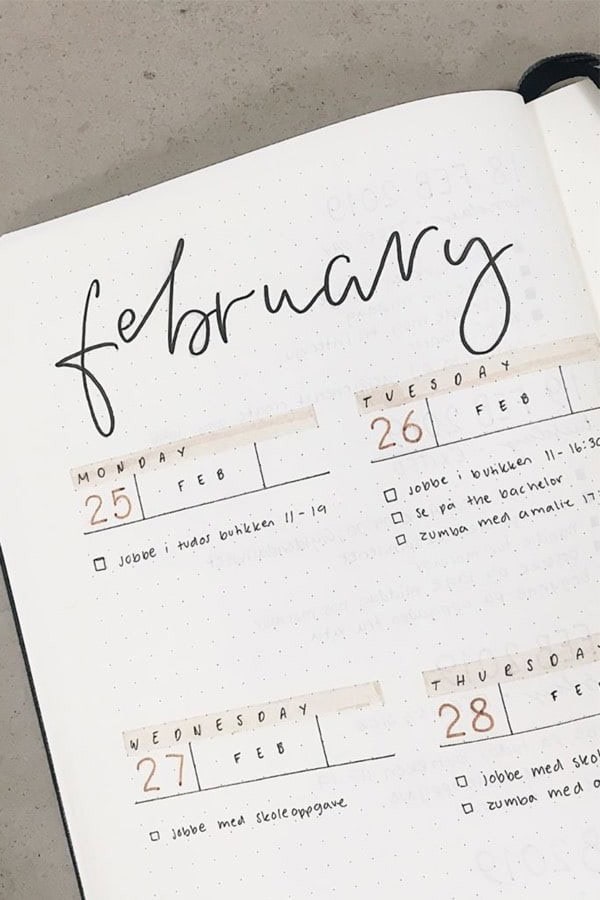 february
MONDAY
25 FEB
Jobbe i tudos butikken 11-19
TUESDAY
26 FEB
Jobbe i butikken 11-16:30
se på the bachelor
zumba med amalie 17
WEDNESDAY
27 FEB
Jobbe med skoleoppgave
THURSDAY
28 FE
jobbe med skol
zumba med a